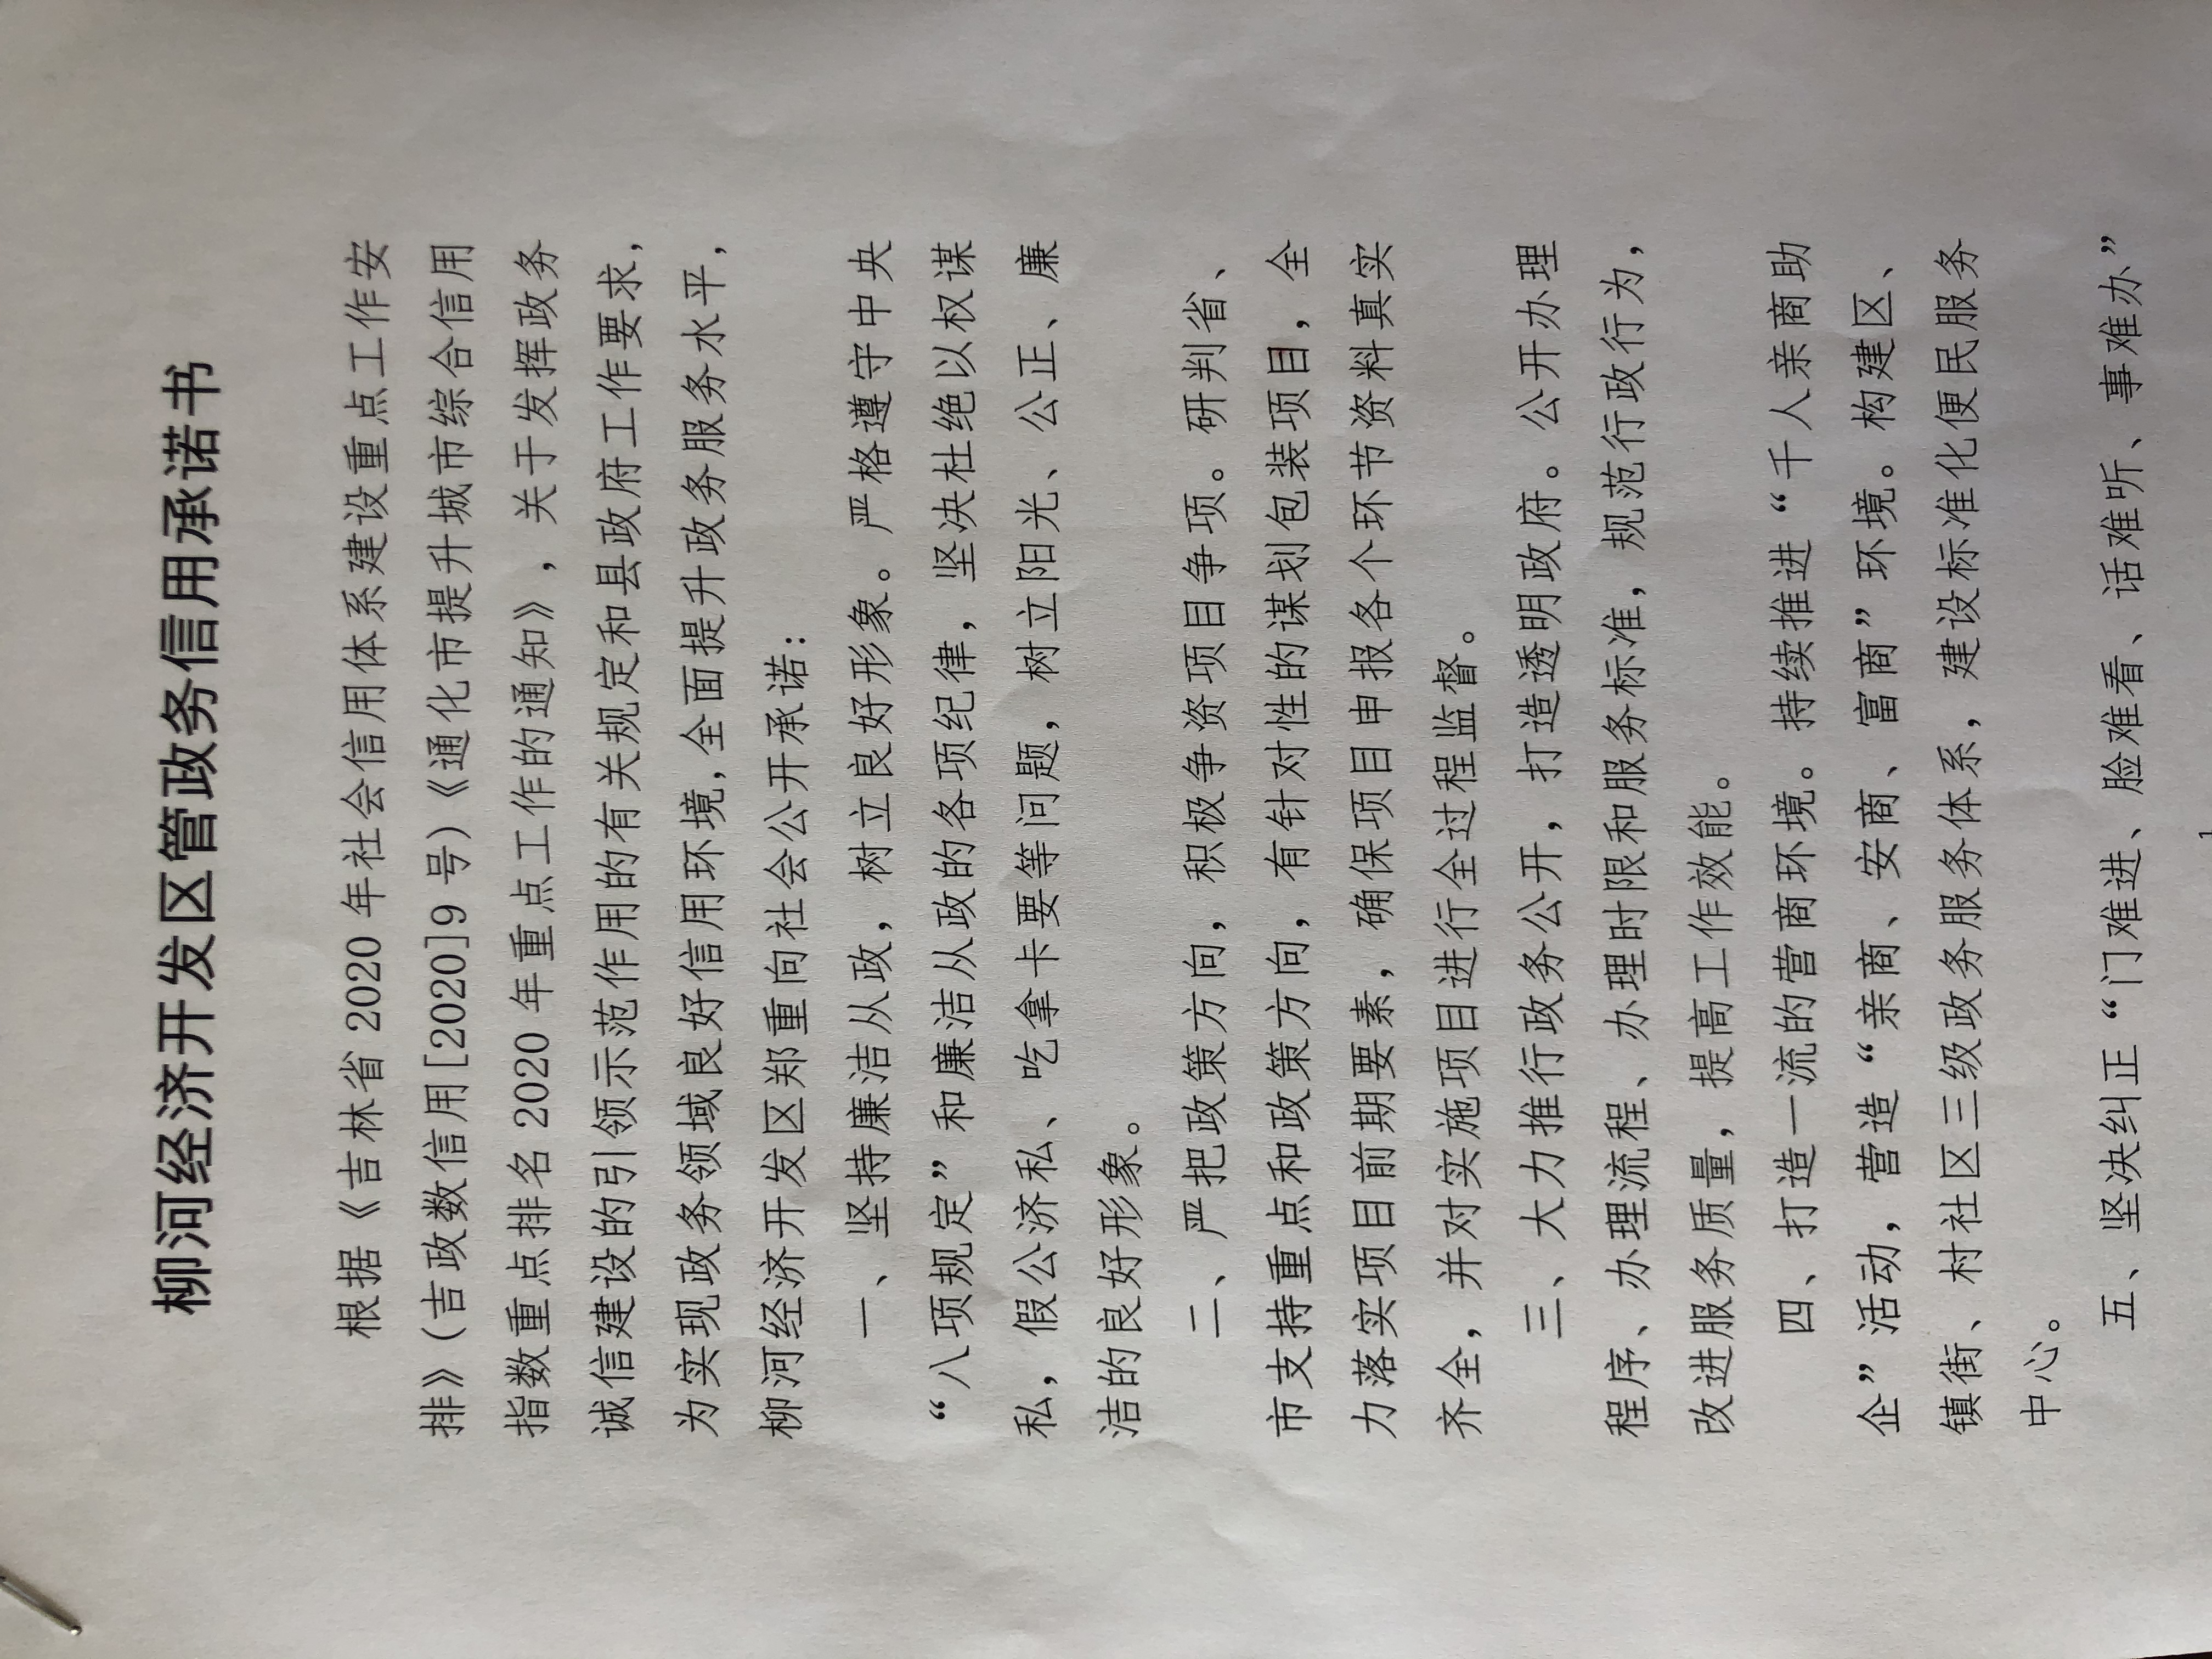 柳河经济开发区管政务信用承诺书
根据《吉林省 2020 年社会信用体系建设重点工作安
排》（吉政数信用[2020]9 号）《通化市提升城市综合信用
指数重点排名 2020 年重点工作的通知》，关于发挥政务
诚信建设的引领示范作用的有关规定和县政府工作要求，
为实现政务领域良好信用环境,全面提升政务服务水平，
柳河经济开发区郑重向社会公开承诺：
一、坚持廉洁从政，树立良好形象。严格遵守中央
“八项规定”和廉洁从政的各项纪律，坚决杜绝以权谋
私，假公济私、吃拿卡要等问题，树立阳光、公正、廉
洁的良好形象。
二、严把政策方向，积极争资项目争项。研判省、
市支持重点和政策方向，有针对性的谋划包装项目，全
力落实项目前期要素，确保项目申报各个环节资料真实
齐全，并对实施项目进行全过程监督。
三、大力推行政务公开，打造透明政府。公开办理
程序、办理流程、办理时限和服务标准，规范行政行为，
改进服务质量，提高工作效能。
四、打造一流的营商环境。持续推进“千人亲商助
企”活动，营造“亲商、安商、富商”环境。构建区、
镇街、村社区三级政务服务体系，建设标准化便民服务
中心。
五、坚决纠正“门难进、脸难看、话难听、事难办”
1